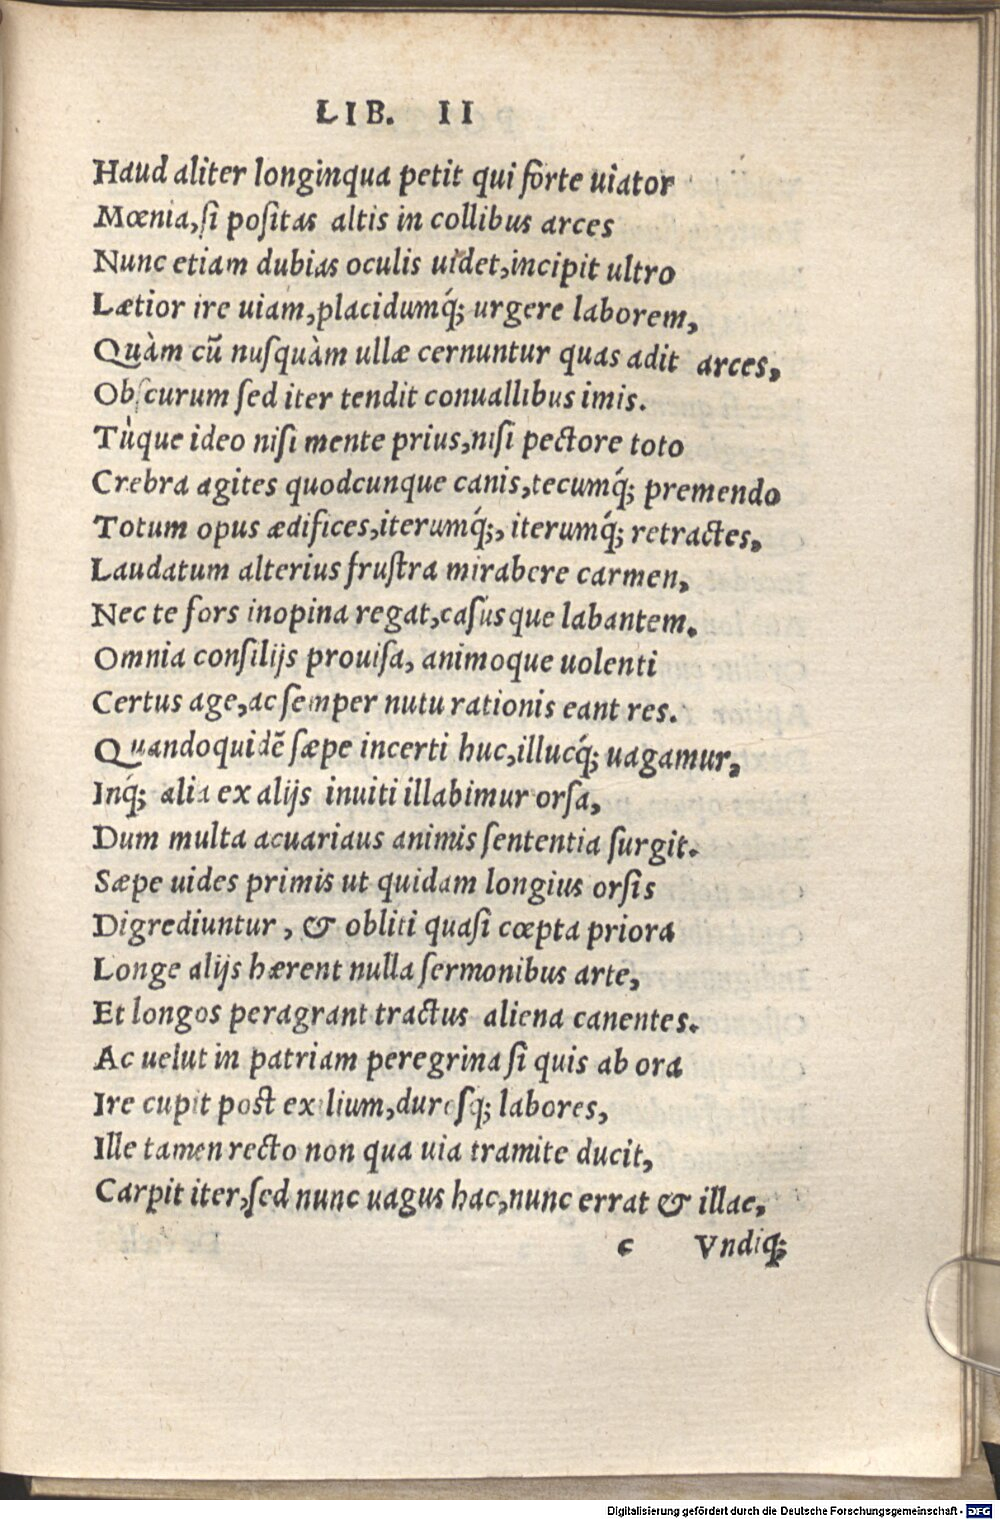 LIB. II
Haud aliter longinqua petit qui forte uiator
Mœnia,ſi poſitas altis in collibus arces
Nunc etiam dubias oculis uidet,incipit ultro
Lætior ire uiam,placidumq́; urgere laborem,
Quàm cũ nuſquàm ullæ cernuntur quas adit arces,
Obſcurum ſed iter tendit conuallibus imis.
Tùque ideo niſi mente prius,niſi pectore toto
Crebra agites quodcunque canis,tecumq́; premendo
Totum opus ædifices,iterumq́;, iterumq́; retractes,
Laudatum alterius fruſtra mirabere carmen,
Nec te fors inopina regat,caſusque labantem.
Omnia conſilijs prouiſa, animoque uolenti
Certus age,ac ſemper nutu rationis eant res.
Quandoquidẽ ſæpe incerti huc,illucq́; uagamur,
Inq́; alia ex alijs inuiti illabimur orſa,
Dum multa acuariaus animis ſententia ſurgit.
Sæpe uides primis ut quidam longius orſis
Digrediuntur, & obliti quaſi cœpta priora
Longe alijs hærent nulla ſermonibus arte,
Et longos peragrant tractus aliena canentes.
Ac uelut in patriam peregrina ſi quis ab ora
Ire cupit post exilium,duresq; labores,
Ille tamen recto non qua uia tramite ducit,
Carpit iter,ſed nunc uagus hac,nunc errat & illac,
c Vndiq;
Digitalisierung gefördert durch die Deutsche Forschungsgemeinschaft - DFG